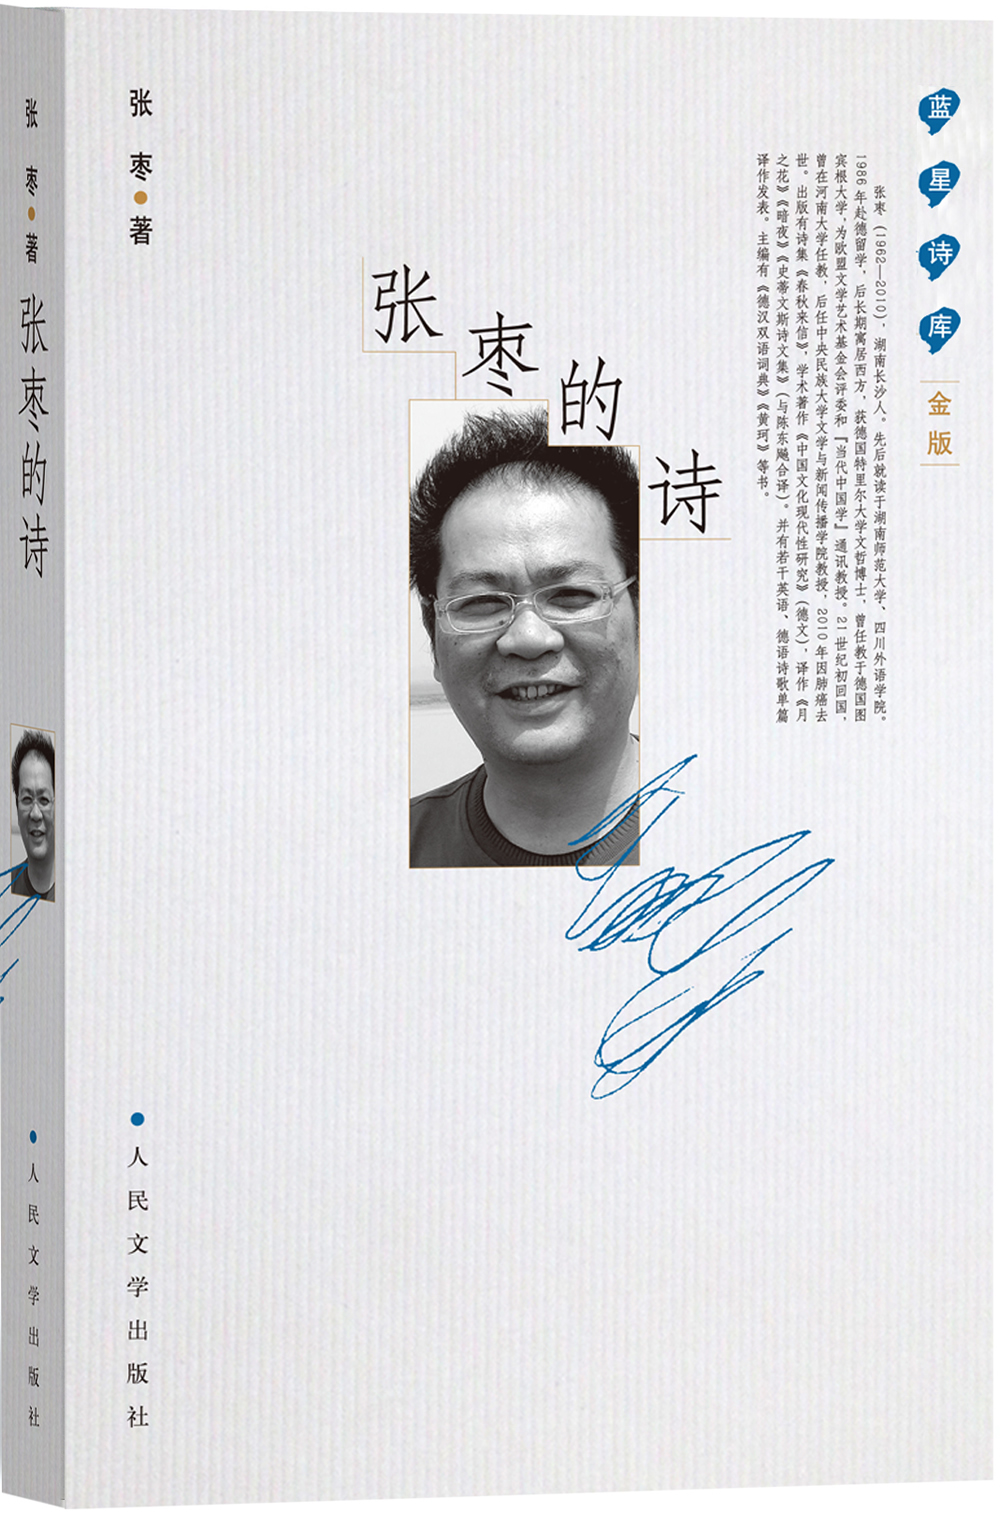 张枣·著
张枣的诗
人民文学出版社
张枣·著
张枣的诗
蓝星诗库
金版
张枣（1962—2010），湖南长沙人。先后就读于湖南师范大学、四川外语学院。
1986年赴德留学，后长期寓居西方，获德国特里尔大学文哲博士，曾任教于德国图
宾根大学，为欧盟文学艺术基金会评委和『当代中国学』通讯教授。21世纪初回国，
曾在河南大学任教，后任中央民族大学文学与新闻传播学院教授，2010年因肺癌去
世。出版有诗集《春秋来信》，学术著作《中国文化现代性研究》（德文），译作《月
之花》《暗夜》《史蒂文斯诗文集》（与陈东飚合译）。并有若干英语、德语诗歌单篇
译作发表。主编有《德汉双语词典》《黄珂》等书。
人民文学出版社